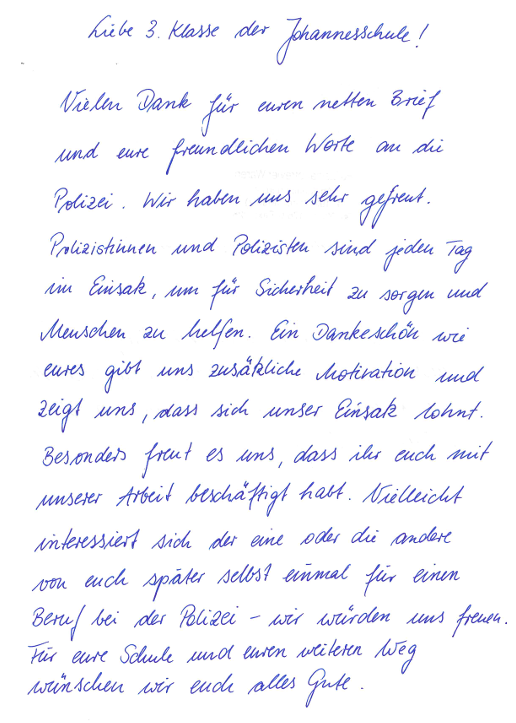 Liebe 3. Klasse der Johannesschule!
Vielen Dank für euren netten Brief
und eure freundlichen Worte an die
Polizei. Wir haben uns sehr gefreut.
Polizistinnen und Polizisten sind jeden Tag
im Einsatz, um für Sicherheit zu sorgen und
Menschen zu helfen. Ein Dankeschön wie
eures gibt uns zusätzliche Motivation und
zeigt uns, dass sich unser Einsatz lohnt.
Besonders freut es uns, dass ihr euch mit
unserer Arbeit beschäftigt habt. Vielleicht
interessiert sich der eine oder die andere
von euch später selbst einmal für einen
Beruf bei der Polizei – wir würden uns freuen.
Für eure Schule und euren weiteren Weg
wünschen wir euch alles Gute.